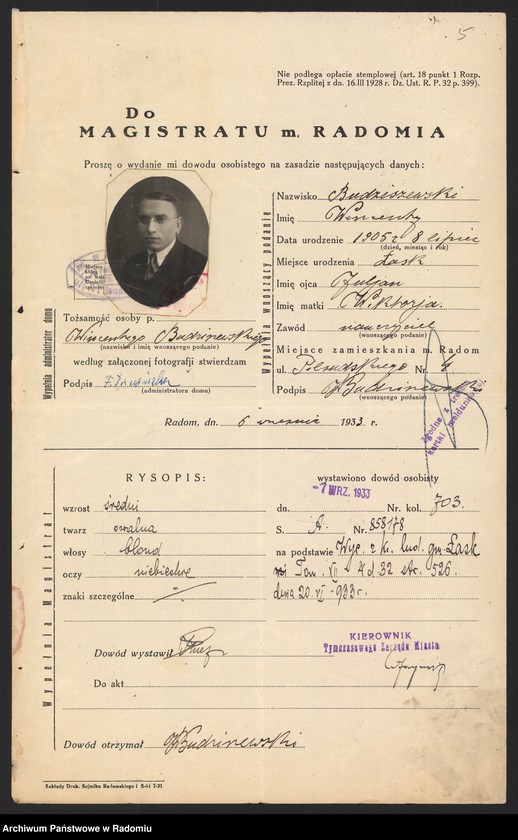 5
Nie podlega opłacie stemplowej (art. 18 punkt 1 Rozp.
Prez. Rzplitej z dn. 16.III 1928 r. Dz. Ust. R. P. 32 p. 399).
Do
MAGISTRATU m. RADOMIA
Proszę o wydanie mi dowodu osobistego na zasadzie następujących danych:
Wypełnia wnoszący podanie
Nazwisko Budziszewski
Imię Wincenty
Data urodzenie 1905 r 8 lipiec
(dzień, miesiąc i rok)
Miejsce urodzenia Łask
Imię ojca Juljan
Imię matki Wiktorja.
Zawód nauczyciel
(wnoszącego podanie)
Miejsce zamieszkania m. Radom
ul. Piłsudskiego Nr.
Podpis Budziszewski
(wnoszącego podanie)
Wypełnia administrator domu
Tożsamość osoby p.
Wincentego Budziszewskiego
(nazwisko i imię wnoszącego podanie)
według załączonej fotografji stwierdzam
Podpis
(administratora domu)
Zgodne z treścią
kartki meldunkowej
Radom, dn. 6 września 1933 r.
Wypełnia Magistrat
RYSOPIS:
wzrost średni
twarz owalna
włosy blond
oczy niebieskie
znaki szczególne
wystawiono dowód osobisty
dn. -7 WRZ. 1933 Nr. kol. 703.
S. A. Nr. 858178
na podstawie Wyc. z ks. lud. gm. Łask
Tom. VII - 4 d. 32 str. 526.
dnia 20. VI - 933 r.
KIEROWNIK
Tymczasowego Zarządu Miasta
Dowód wystawił
Do akt
Dowód otrzymał Budziszewski
Zakłady Druk. Sejmiku Radomskiego i S-ki 7-31
Archiwum Państwowe w Radomiu